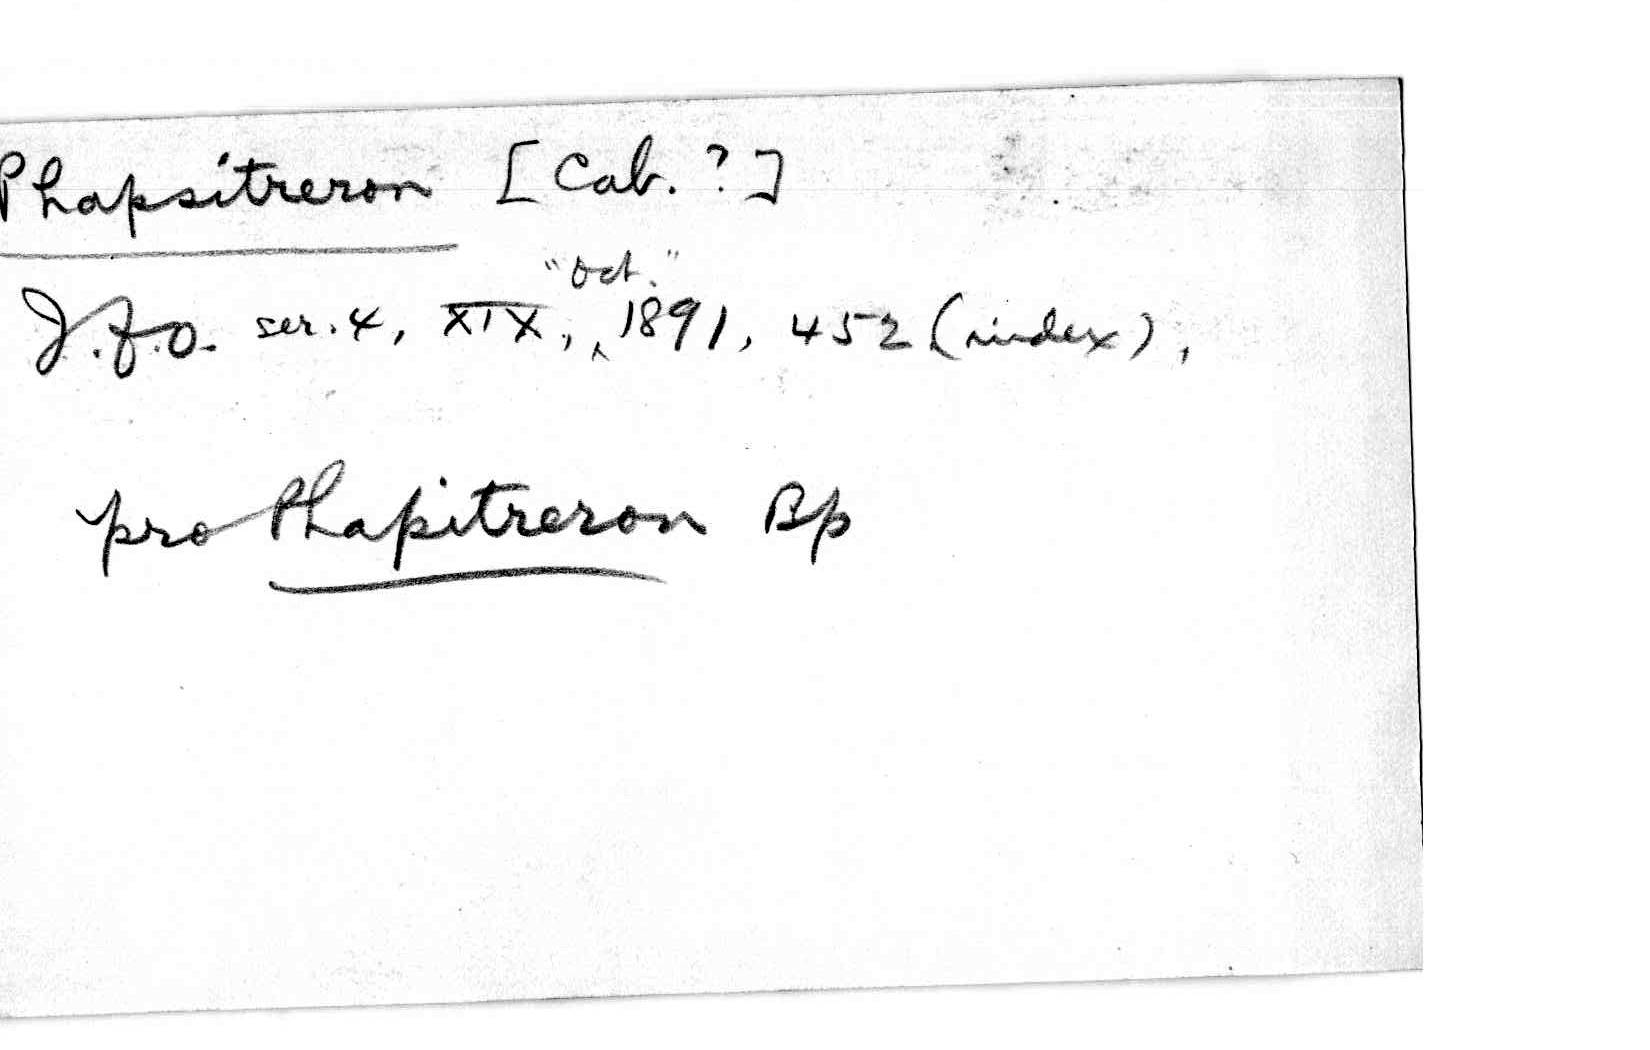 Phapsitreron [Cab. ?]
J.f.O. ser. 4, XIX, "Oct." 1891, 452 (index),
pro Phapitreron Bp